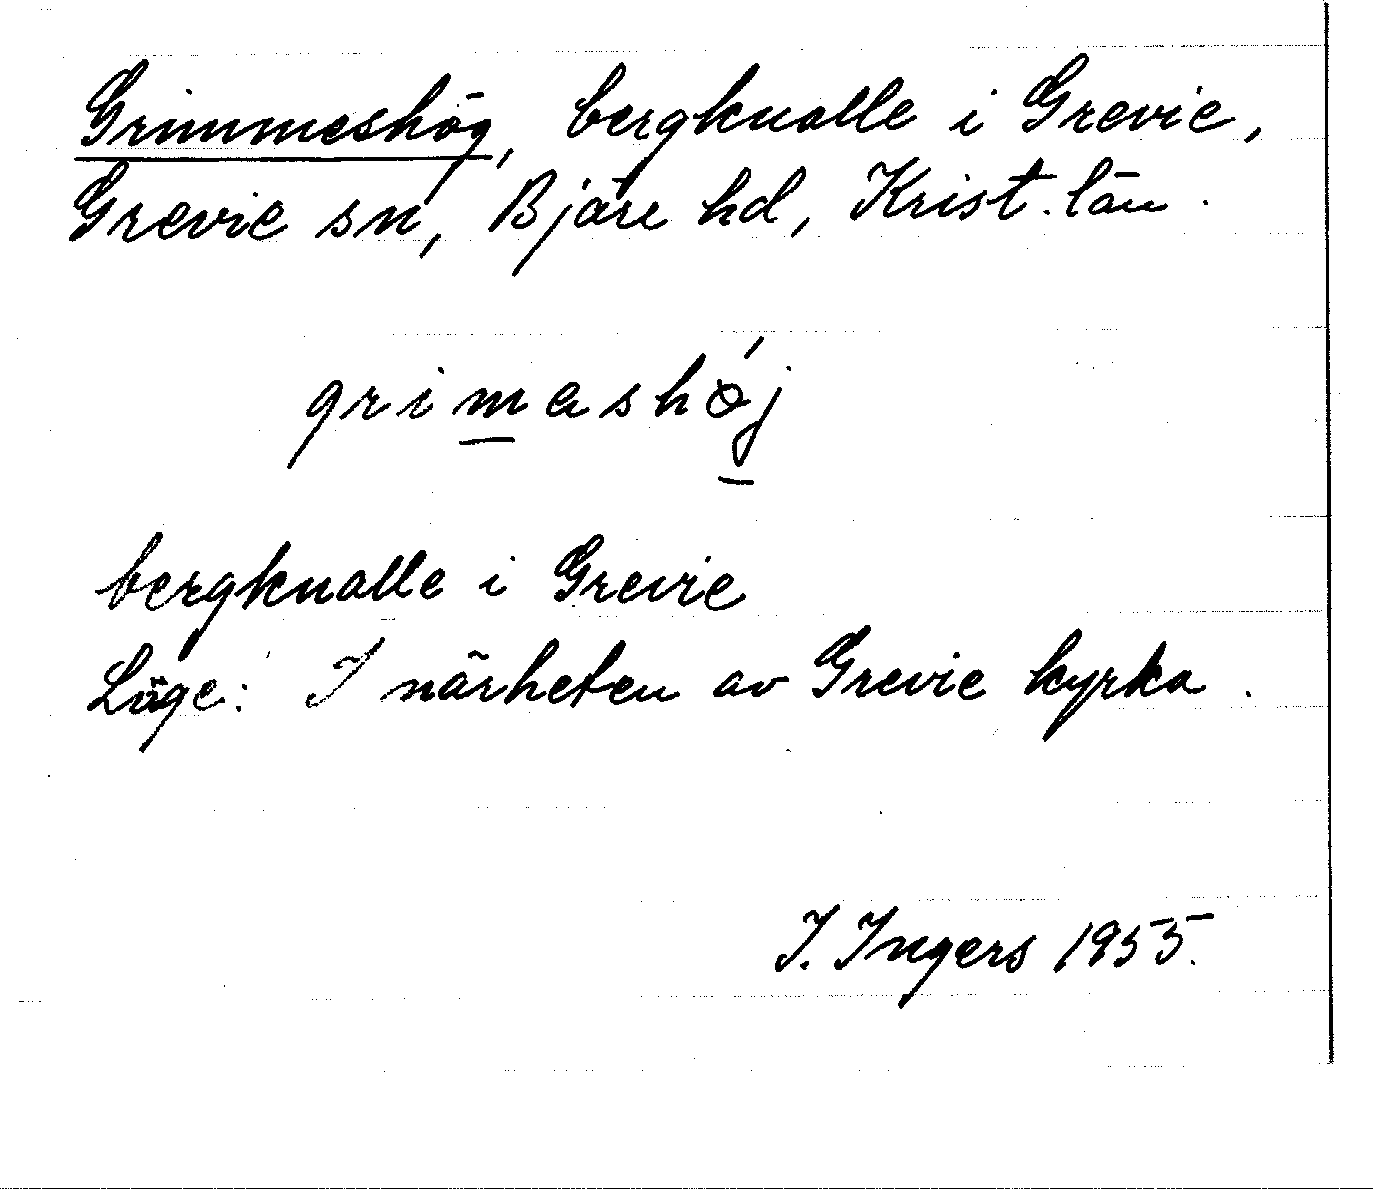 Grimmeshög, bergknalle i Grevie,
Grevie sn, Bjäre hd, Krist. län.
grimashǿj
bergknalle i Grevie
Läge: I närheten av Grevie kyrka.
I. Ingers 1955.